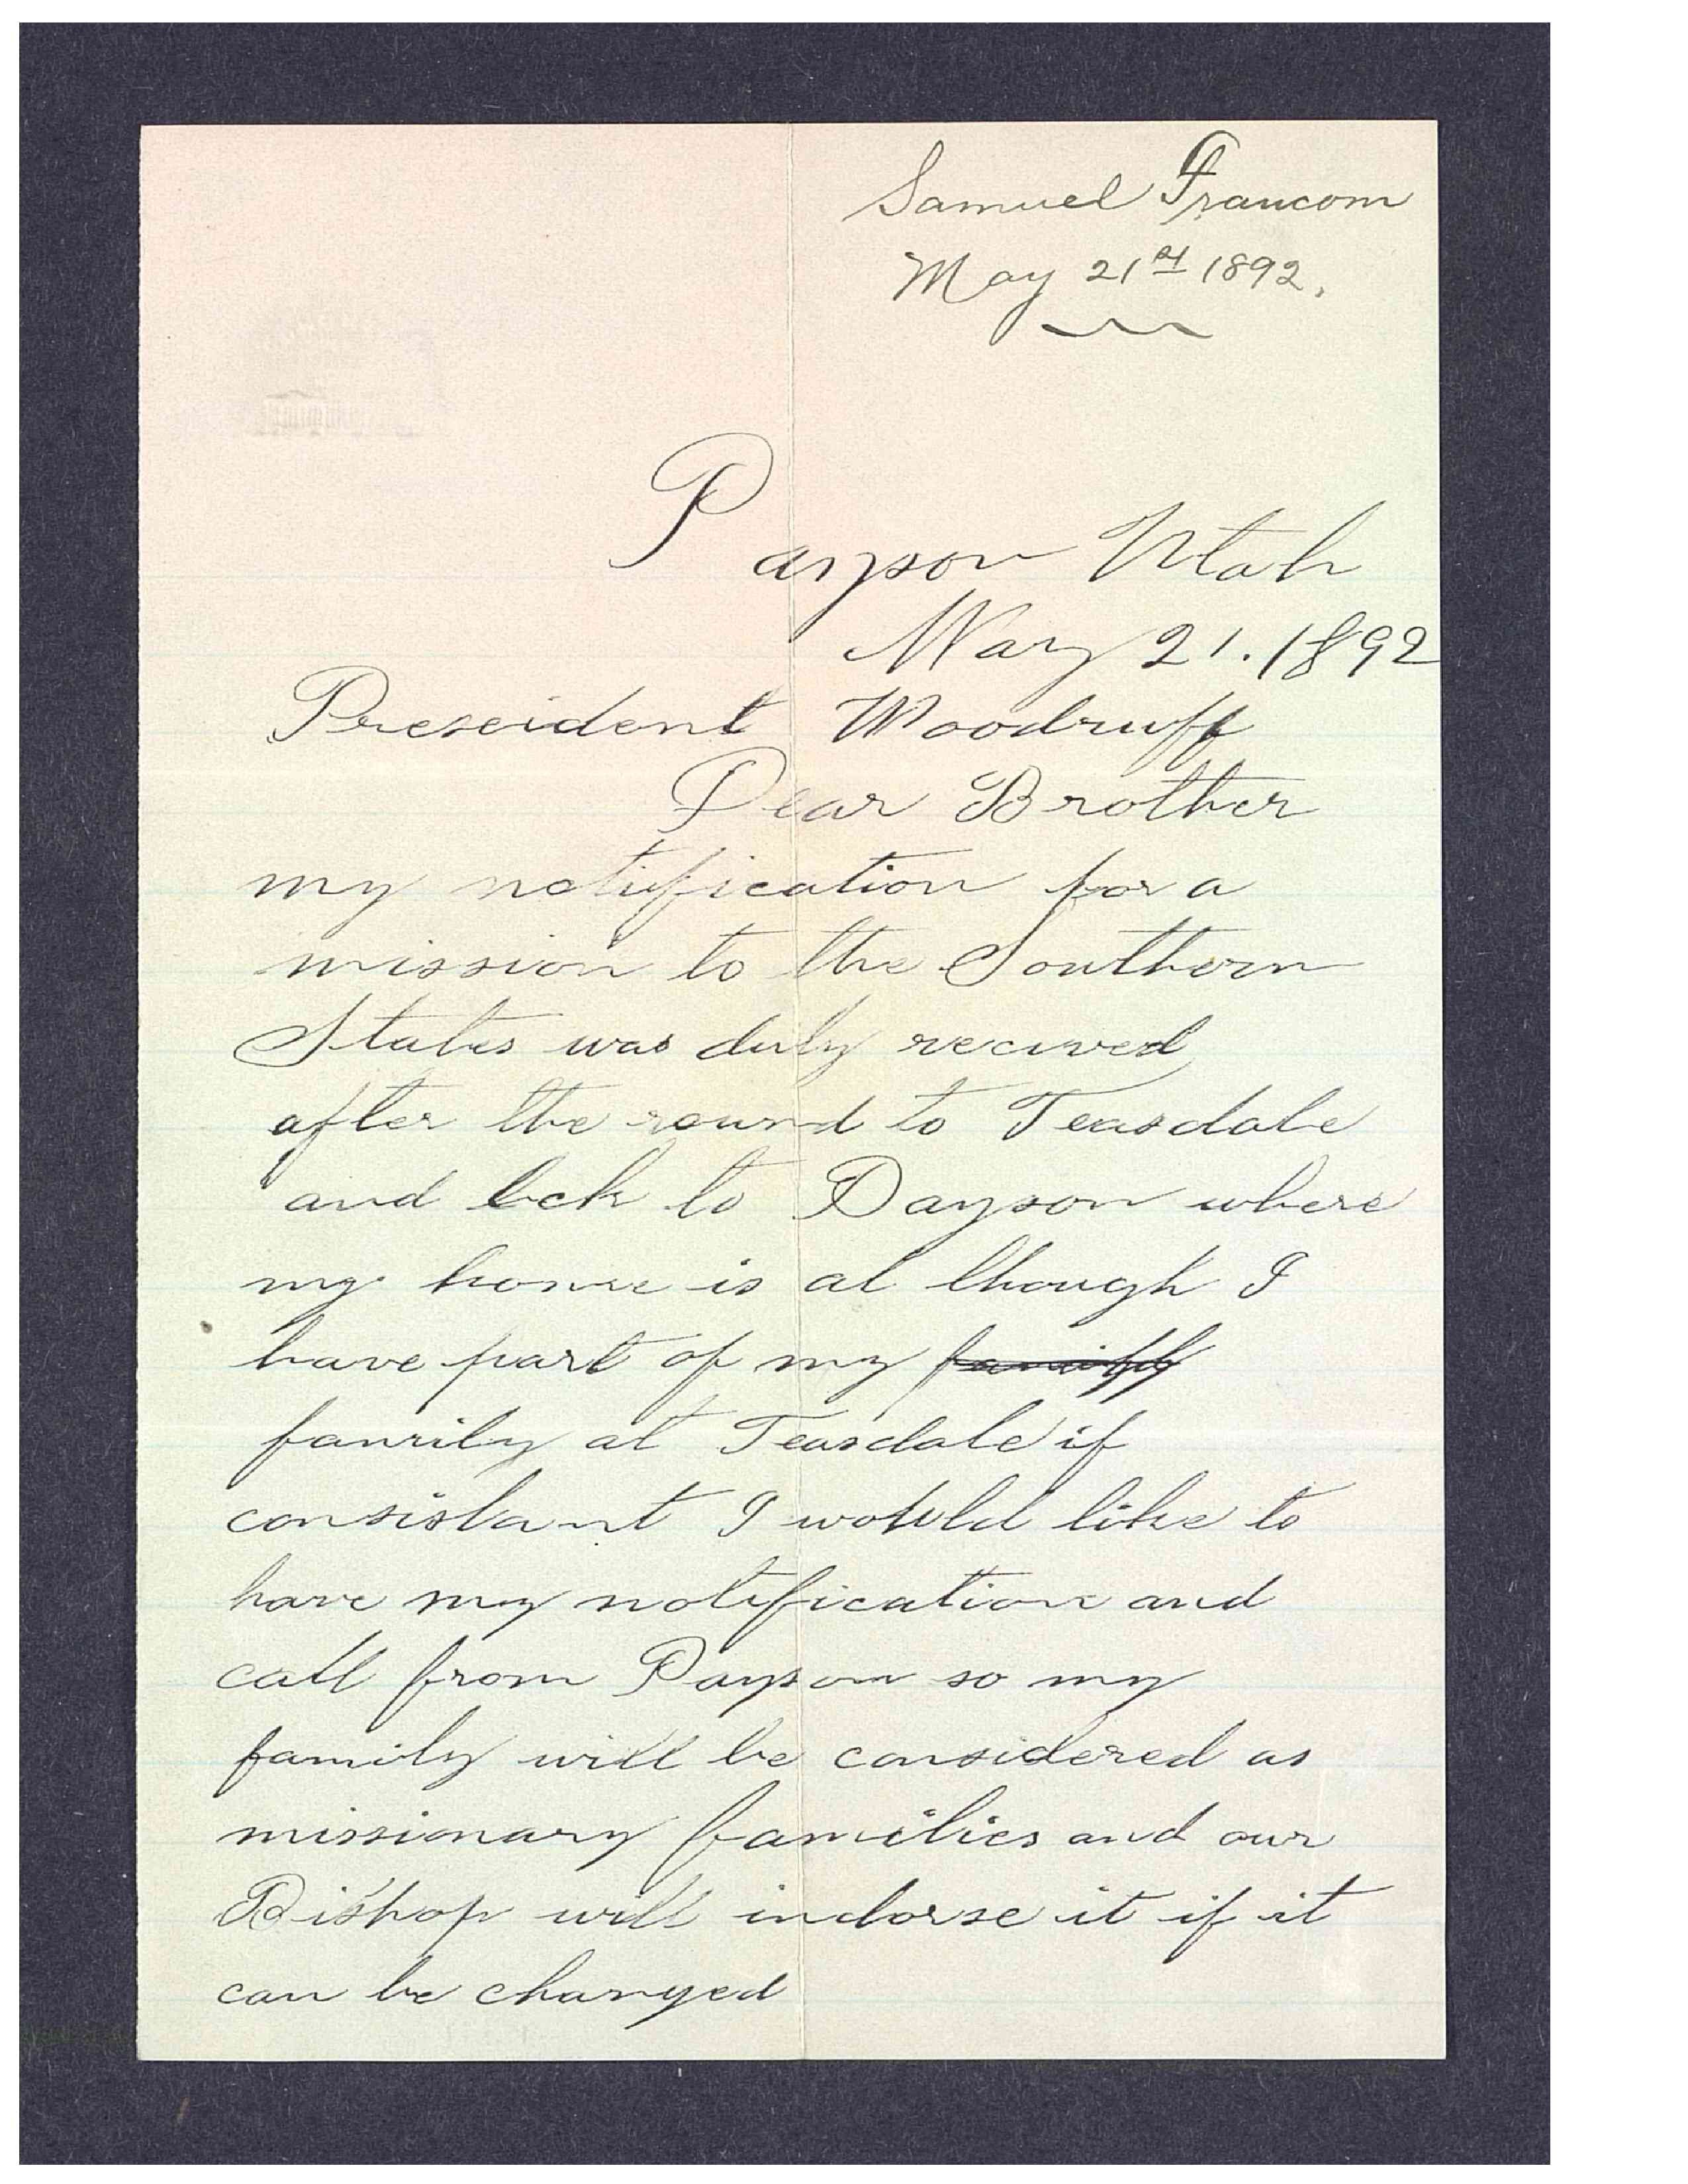 Samuel Francom
May 21st 1892.
Payson Utah
May 21. 1892
Preseident Woodruff
Dear Brother
my notification for a
mission to the Southern
States was duly recived
after the round to Teasdale
and bck to Payson where
my home is al though I
have part of my family
family at Teasdale if
consistant I would like to
have my notification and
call from Payson so my
family will be considered as
missionary families and our
Bishop will indorse it if it
can be changed